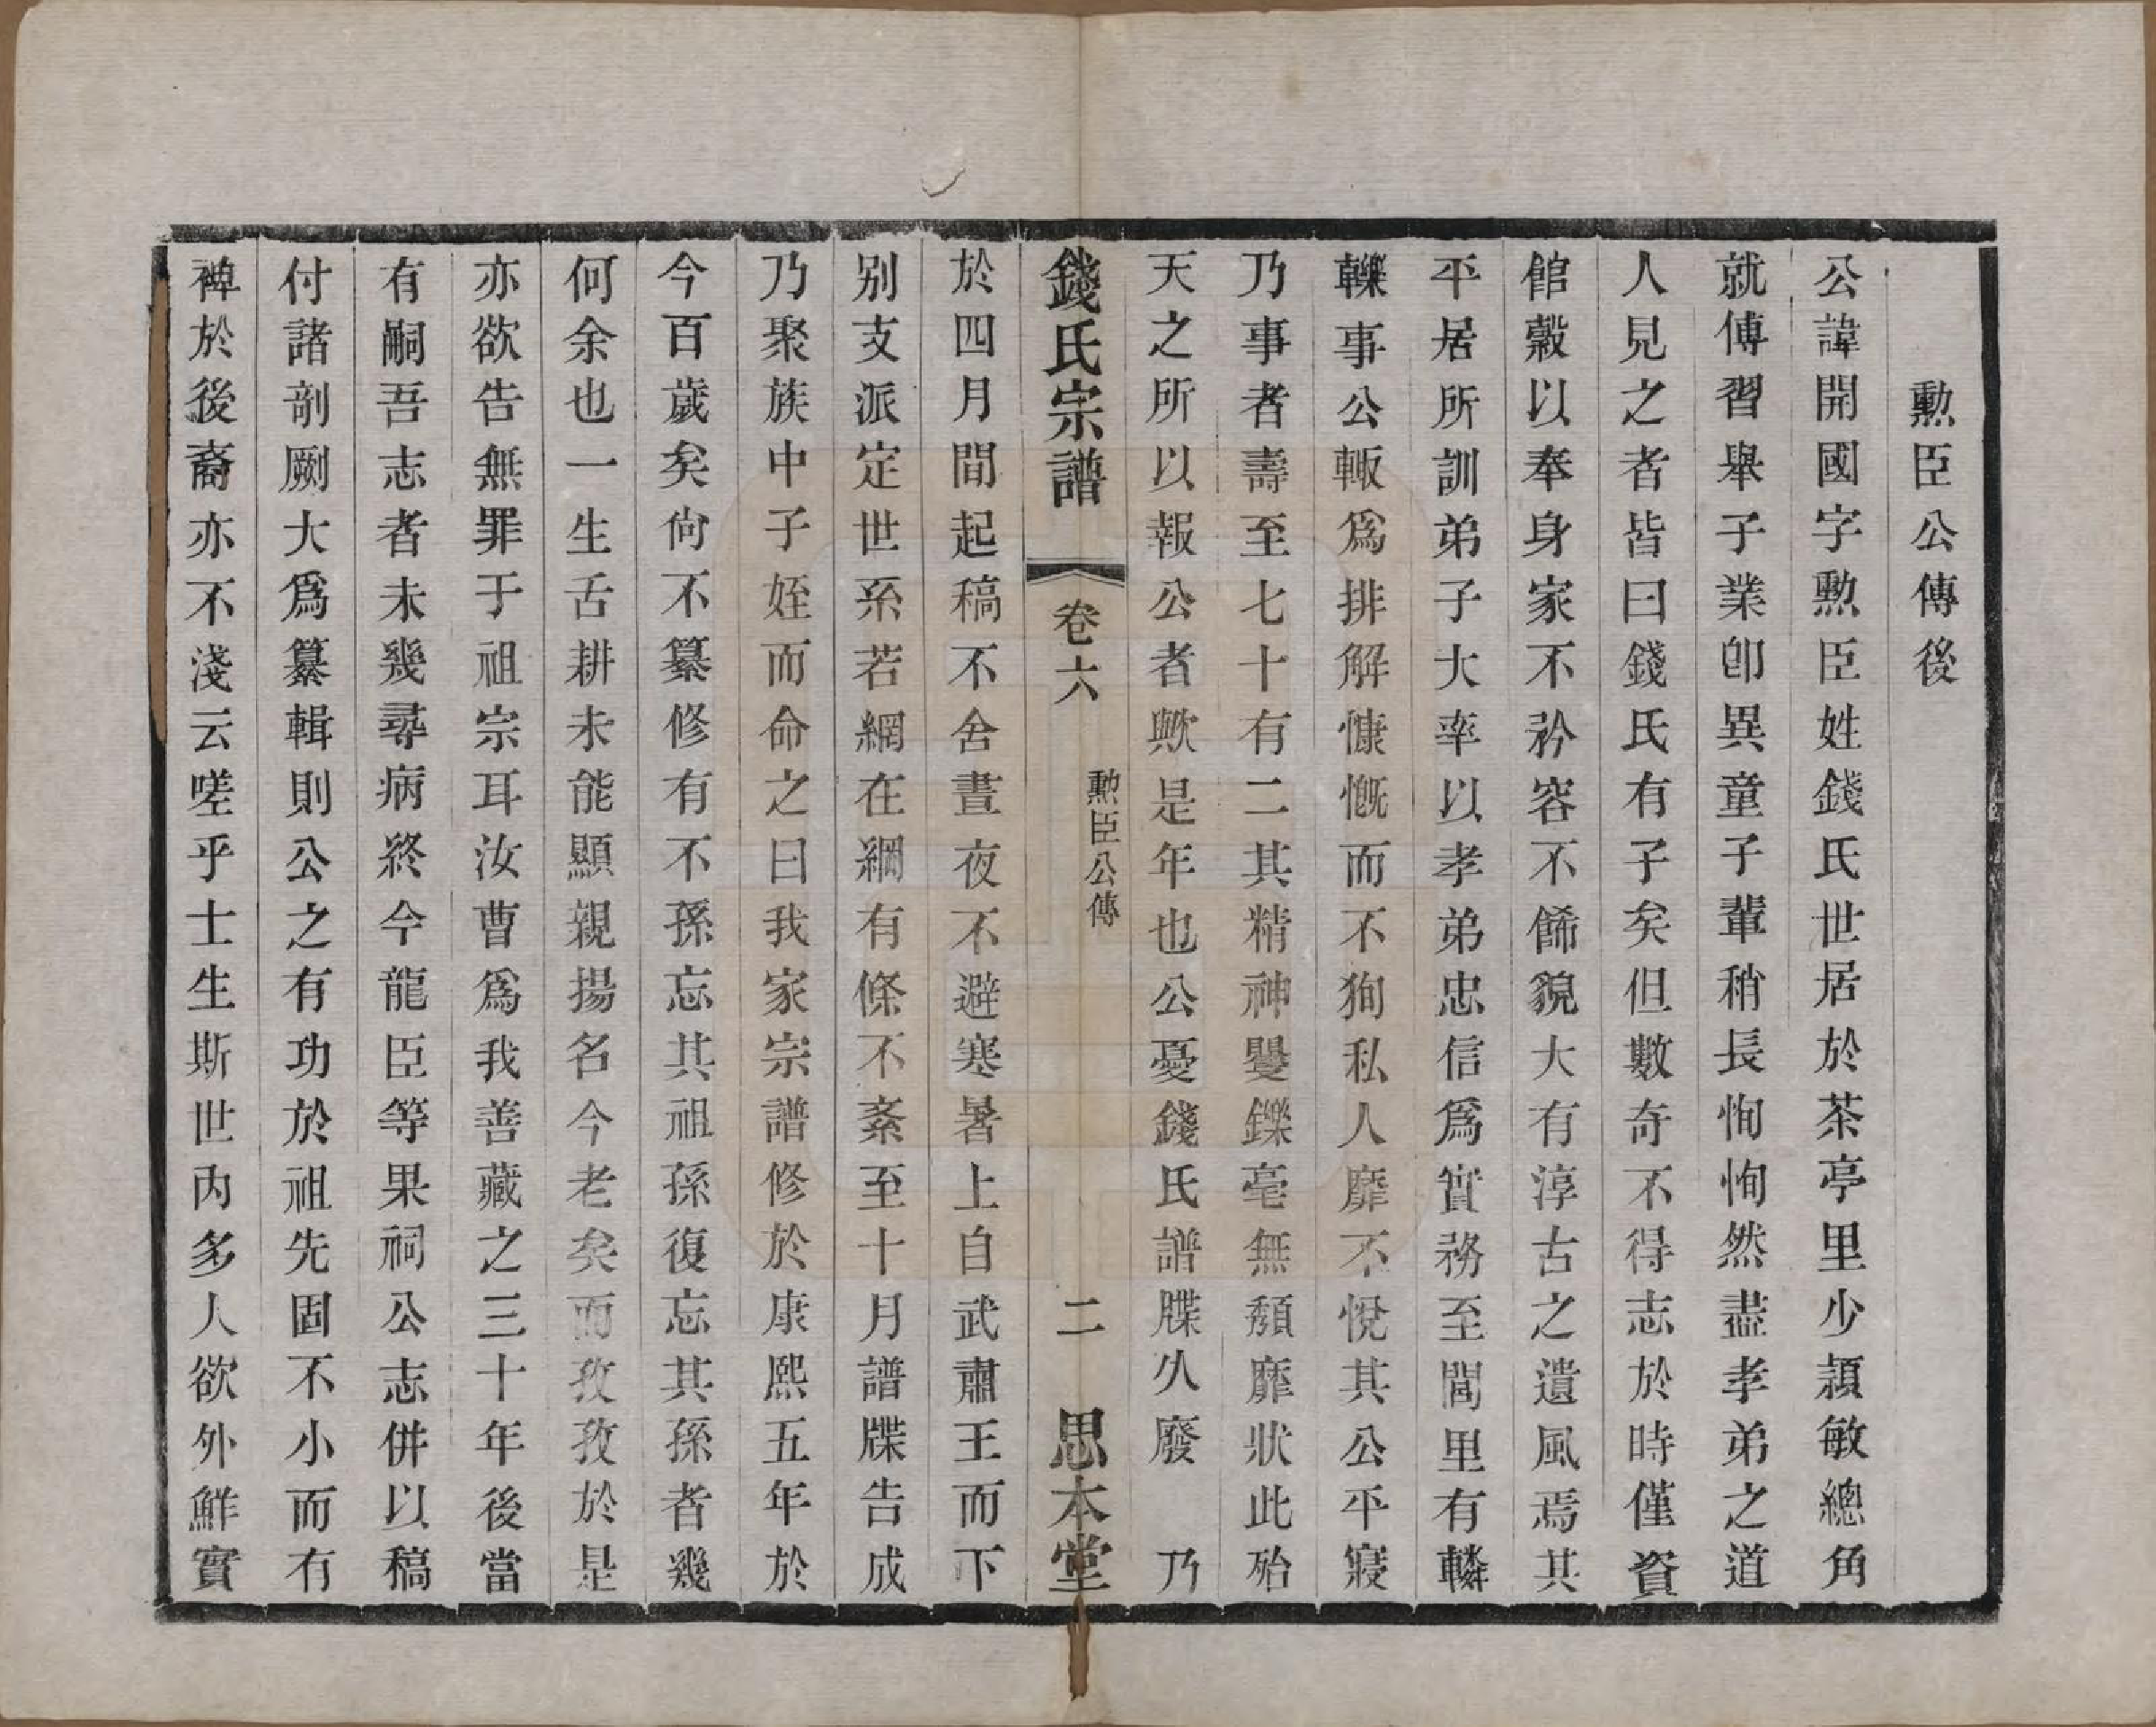 勲臣公傳後
公諱開國字勲臣姓錢氏世居於茶亭里少頴敏總角
就傅習舉子業卽異童子輩稍長恂恂然盡孝弟之道
人見之者皆曰錢氏有子矣但數奇不得志於時僅資
館穀以奉身家不矜容不餙貌大有淳古之遺風焉其
平居所訓弟子大率以孝弟忠信爲實務至閭里有轔
轢事公輙爲排解慷慨而不狥私人靡不悅其公平寢
乃事者壽至七十有二其精神矍鑠毫無頽靡狀此殆
天之所以報公者歟是年也公憂錢氏譜牒久廢 乃
錢氏宗譜 卷六 勲臣公傳 二 思本堂
於四月間起稿不舍晝夜不避寒暑上自武肅王而下
别支派定世系若網在綱有條不紊至十月譜牒告成
乃聚族中子姪而命之曰我家宗譜修於康熙五年於
今百歲矣尙不纂修有不孫忘其祖孫復忘其孫者幾
何余也一生舌耕未能顯親揚名今老矣而孜孜於是
亦欲告無罪于祖宗耳汝曹爲我善藏之三十年後當
有嗣吾志者未幾尋病終今龍臣等果祠公志倂以稿
付諸剞劂大爲纂輯則公之有功於祖先固不小而有
裨於後裔亦不淺云嗟乎士生斯世内多人欲外鮮實